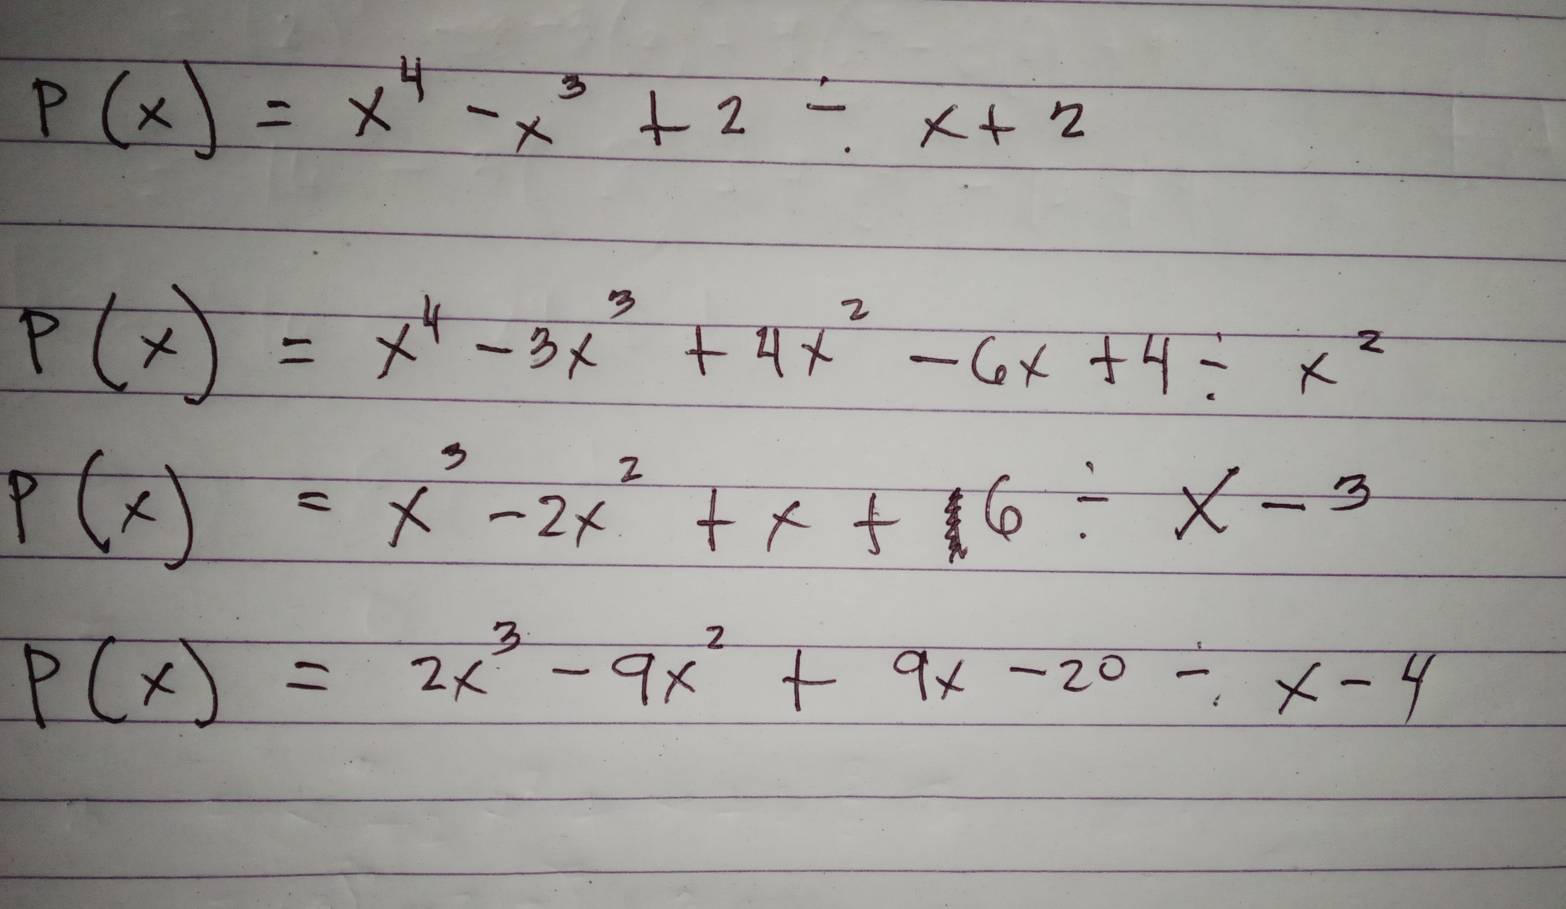 P(x) = x⁴ - x³ + 2 ÷ x + 2
P(x) = x⁴ - 3x³ + 4x² - 6x + 4 ÷ x²
P(x) = x³ - 2x² + x + 6 ÷ x - 3
P(x) = 2x³ - 9x² + 9x - 20 ÷ x - 4